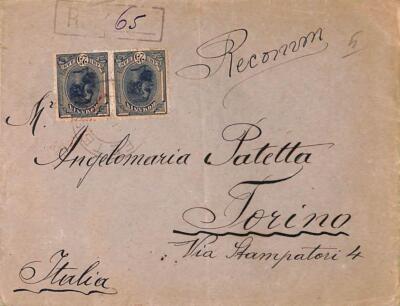 R 65
Recomm
4
Mr.
Angelomaria Patetta
Torino
Via Stampatori 4
Italia